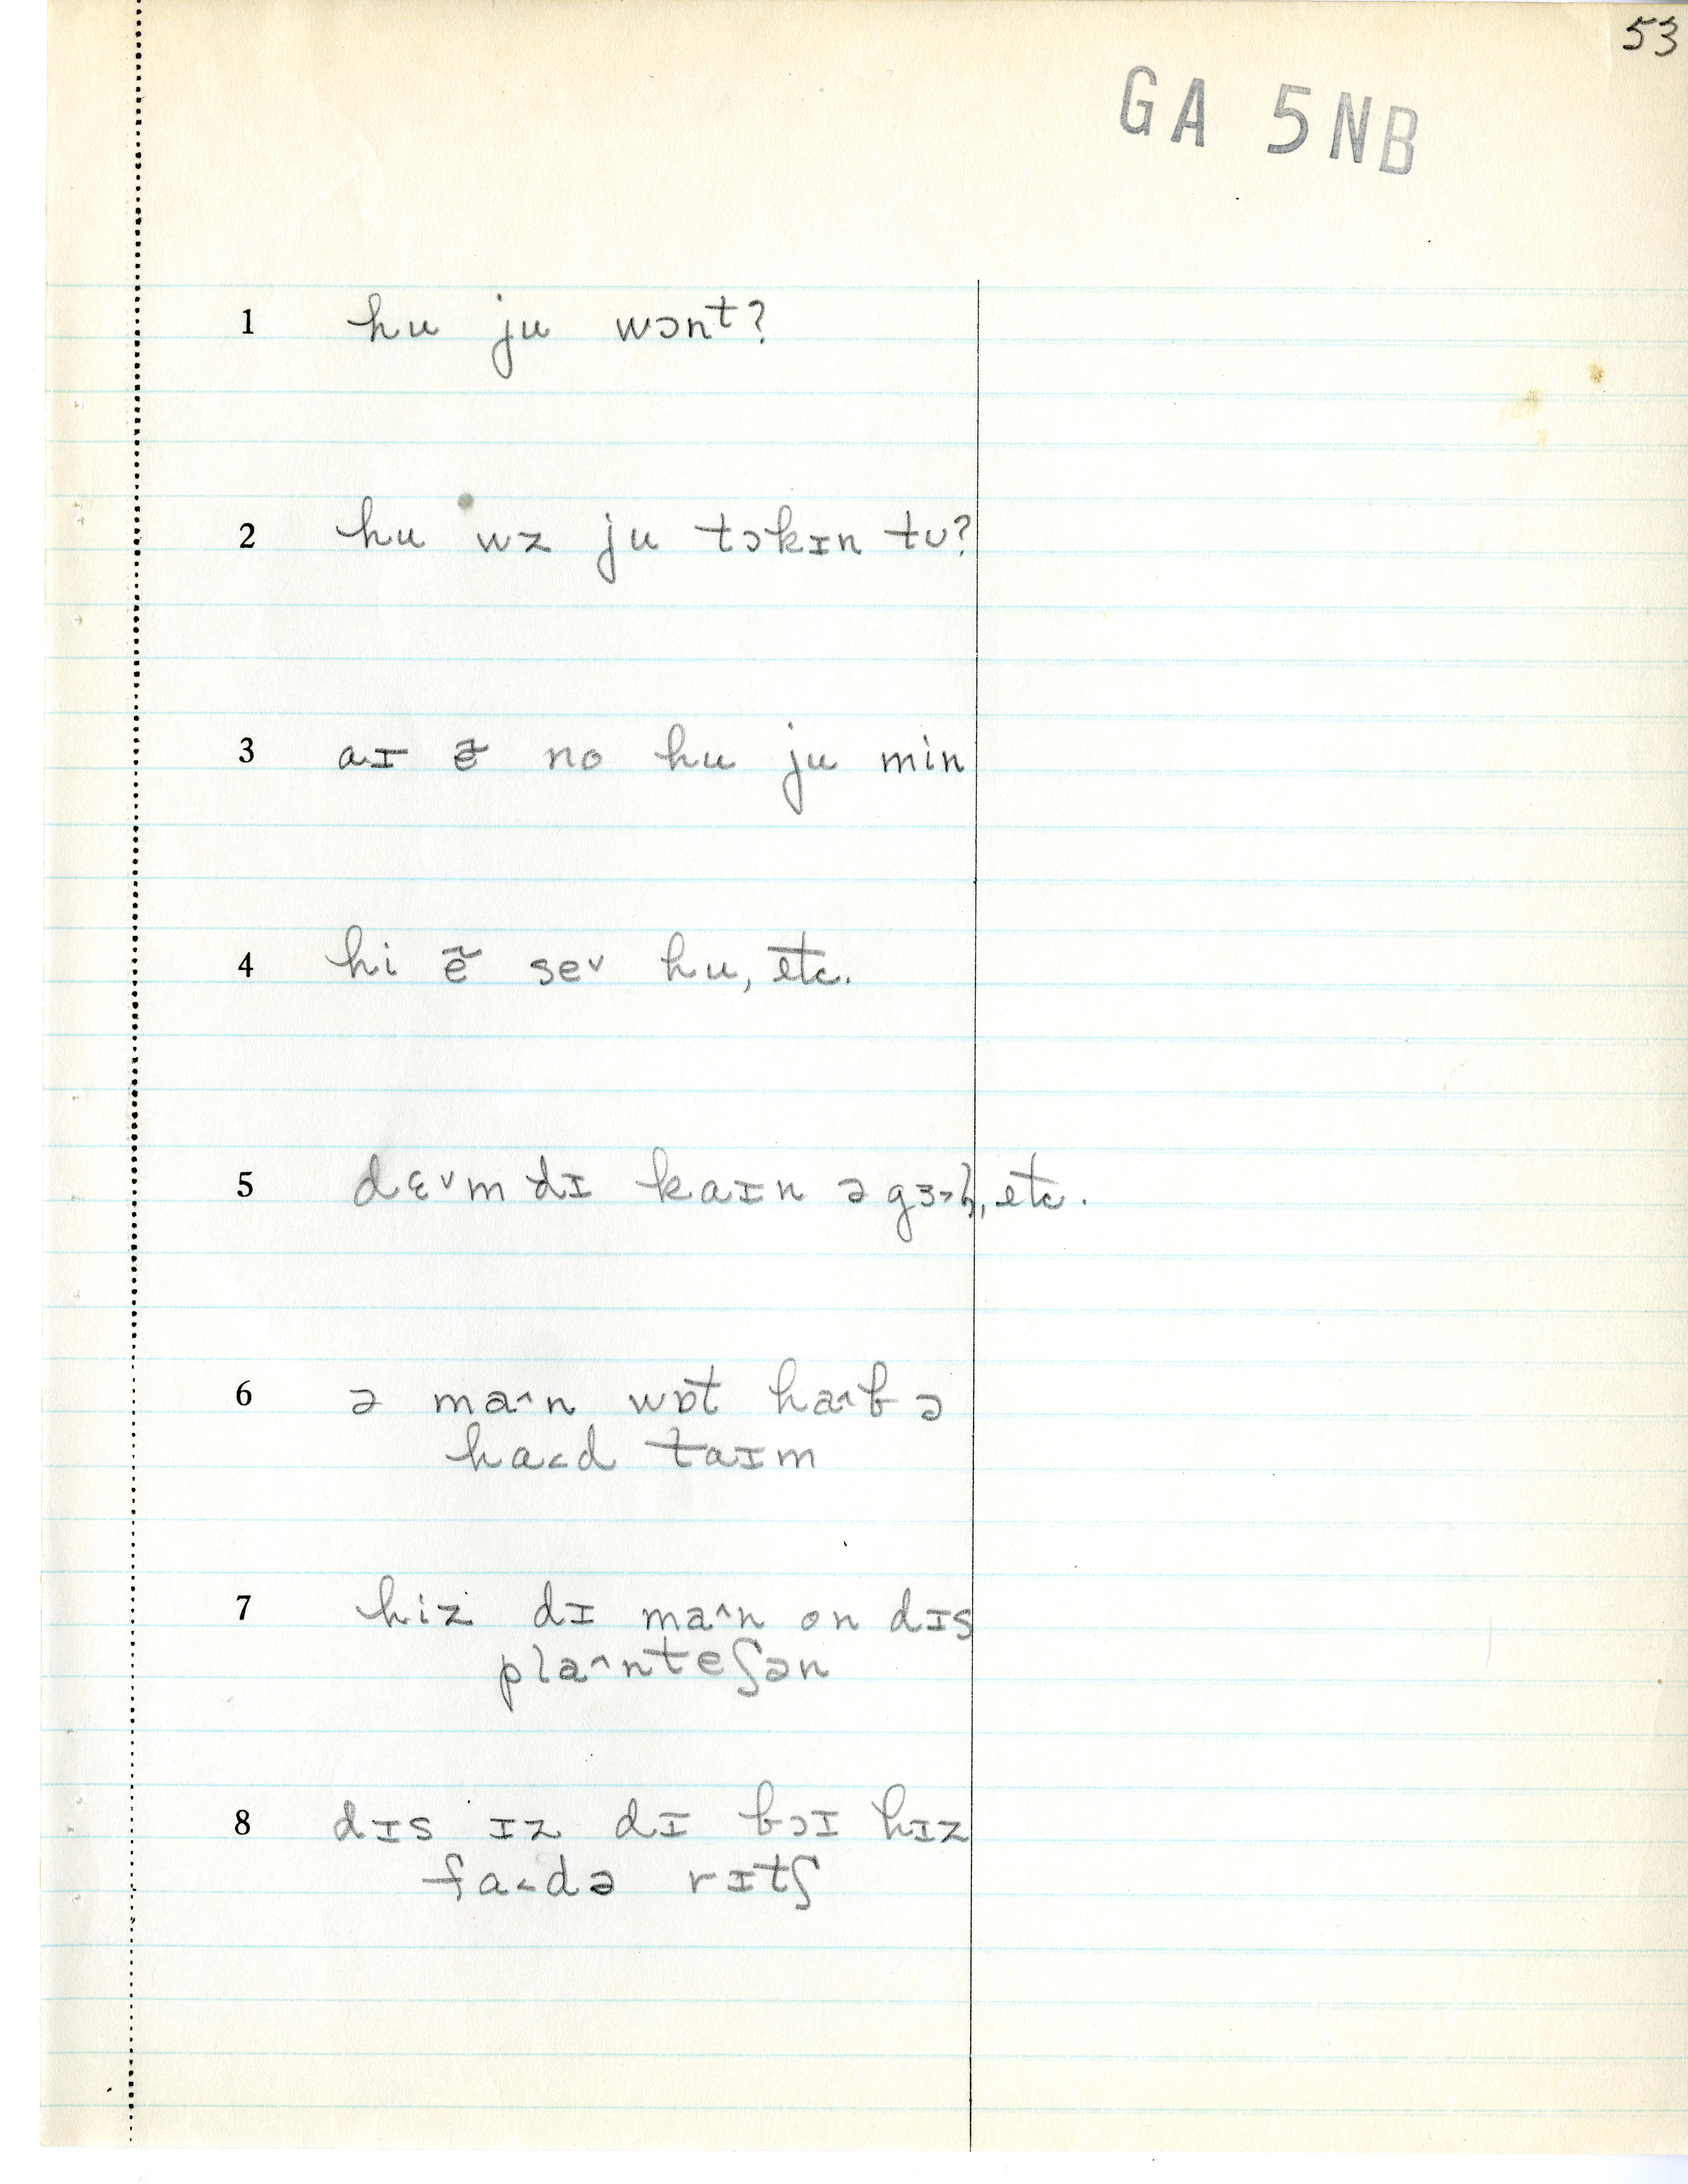 53
GA 5NB
1 hu ju wɔnt?
2 hu wz ju tɔkɪn tu?
3 aɪ ẽ no hu ju min
4 hi ẽ se˅ hu, etc.
5 dɛ˅m dɪ kaɪn ə etc.
6 ə ma^n wɒt ha^b ə
ha<d taɪm
7 hiz dɪ ma^n on dɪs
pla^nteʃən
8 dɪs ɪz dɪ bɔɪ hɪz
fa<də rɪtʃ